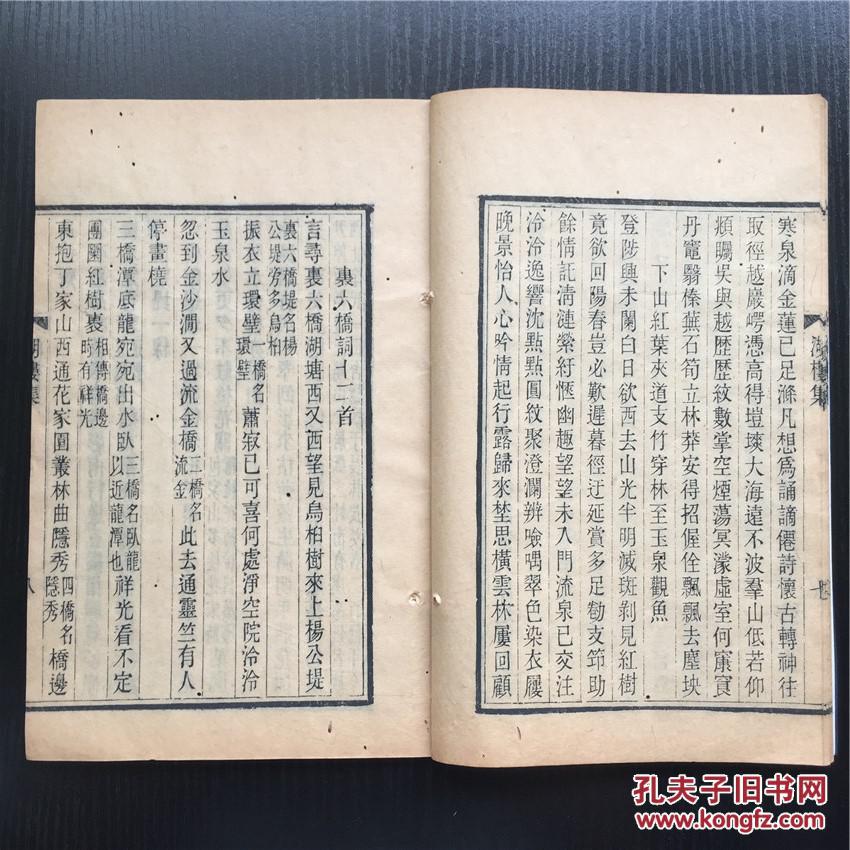 寒泉滴金蓮已足滌凡想爲誦謫僊詩懷古轉神往
取徑越巖崿憑高得塏塽大海遠不波羣山低若仰
頫矚吳與越歷歷紋數掌空煙蕩冥濛虛室何窱窱
丹竈翳榛蕪石筍立林莽安得招偓佺飄飄去塵坱
下山紅葉夾道支竹穿林至玉泉觀魚
登陟興未闌白日欲西去山光半明滅斑剝見紅樹
竟欲回陽春豈必歎遲暮徑迂延賞多足勌支筇助
餘情託淸漣縈紆愜幽趣望望未入門流泉已交注
泠泠逸響沈點點圓紋聚澄瀾辨噞喁翠色染衣屨
晚景怡人心吟情起行露歸來坐思橫雲林屢回顧
湖樓集
七
裏六橋詞十二首
言尋裏六橋湖塘西又西望見烏桕樹來上楊公堤
裏六橋堤名楊公堤旁多烏桕
振衣立環璧一橋名環璧蕭寂已可喜何處淨空院泠泠
玉泉水
忽到金沙澗又過流金橋二橋名流金此去通靈竺有人
停畫橈
三橋潭底龍宛宛出水臥三橋名臥龍以近龍潭也祥光看不定
團圞紅樹裹相傳橋邊時有祥光
東抱丁家山西通花家圃叢林曲隱秀四橋名隱秀橋邊
湖樓集
八
孔夫子旧书网
www.kongfz.com